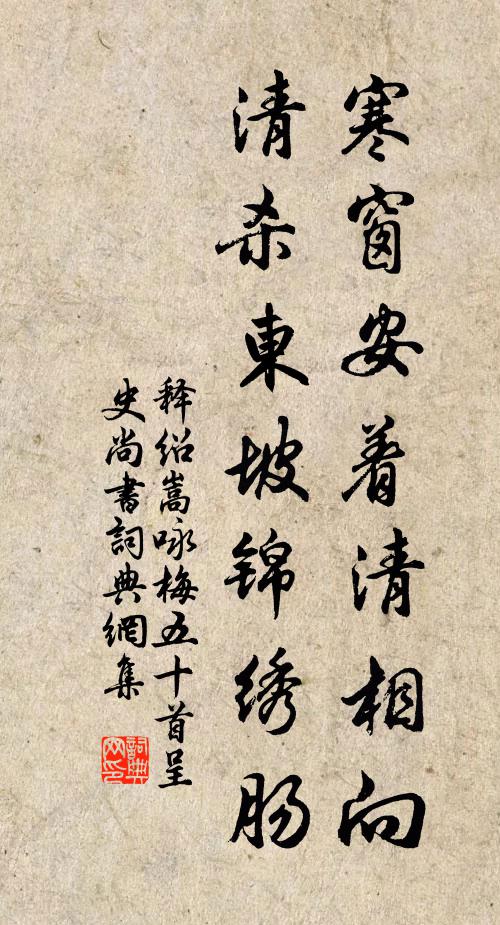 寒窗安着清相向
清杀東坡锦绣肠
释绍嵩咏梅五十首呈
史尚書詞典網集
詞典
网印